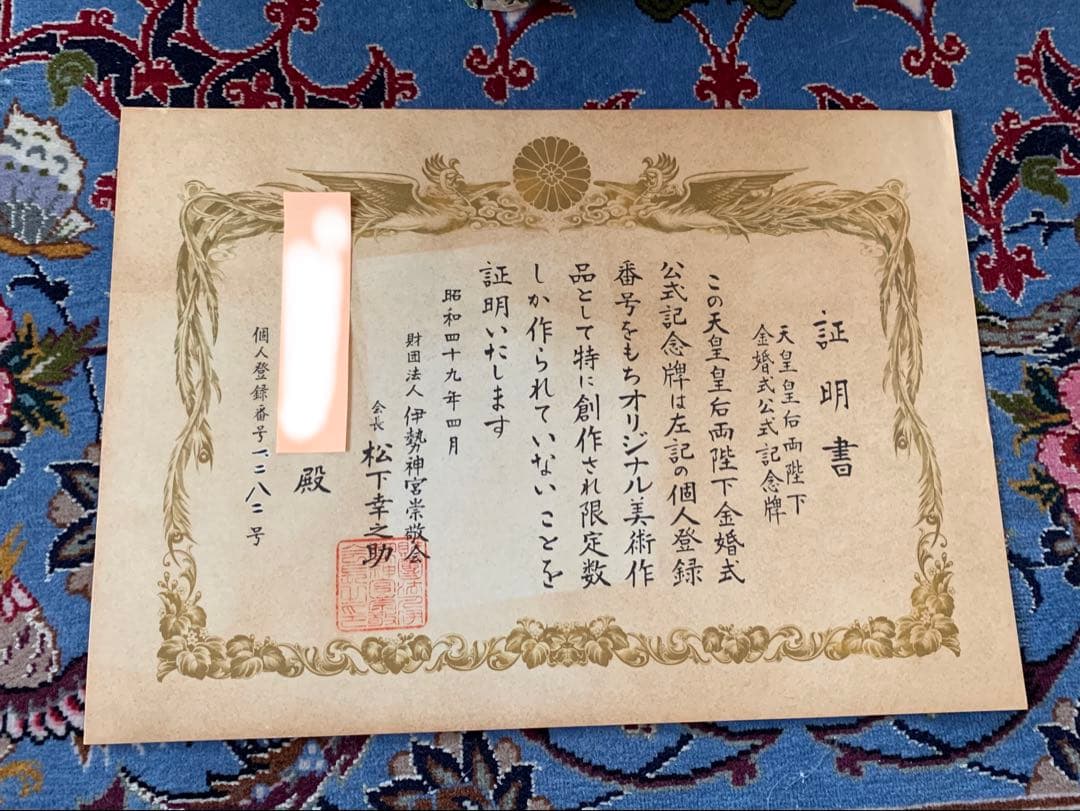 証明書
天皇皇后両陛下
金婚式公式記念牌
この天皇皇后両陛下金婚式
公式記念牌は左記の個人登録
番号をもちオリジナル美術作
品として特に創作され限定数
しか作られていないことを
証明いたします
昭和四十九年四月
財団法人 伊勢神宮崇敬会
会長 松下幸之助
殿
個人登録番号一二八二号